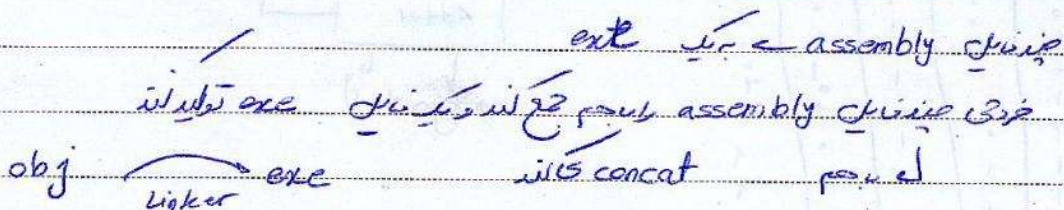 چند فایل assembly ← به یک exe
خروجی چند فایل assembly را با هم جمع کند و یک فایل exe تولید کند
به هم concat می‌کند
obj → exe
Linker